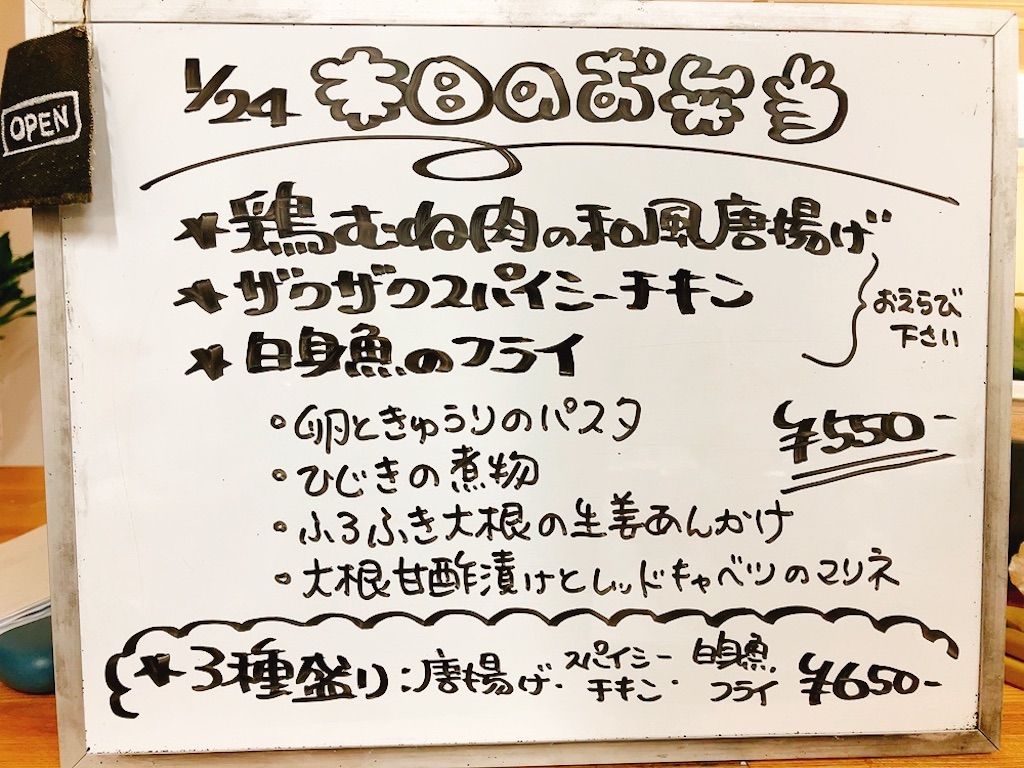 OPEN
1/24 本日のお弁当
★鶏むね肉の和風唐揚げ
★ザクザクスパイシーチキン
★白身魚のフライ
おえらび
下さい
・卵ときゅうりのパスタ
¥550-
・ひじきの煮物
・ふろふき大根の生姜あんかけ
・大根甘酢漬けとレッドキャベツのマリネ
★3種盛り:唐揚げ・スパイシーチキン・白身魚フライ ¥650-